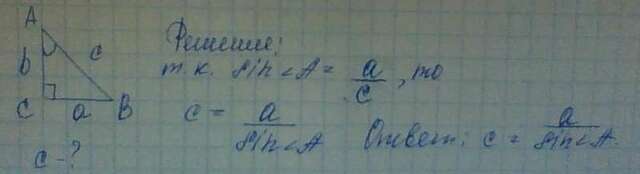 A
b
c
C
a
B
c - ?
Решение:
т.к. sin∠A = a/c, то
c = a/sin∠A
Ответ: c = a/sin∠A.